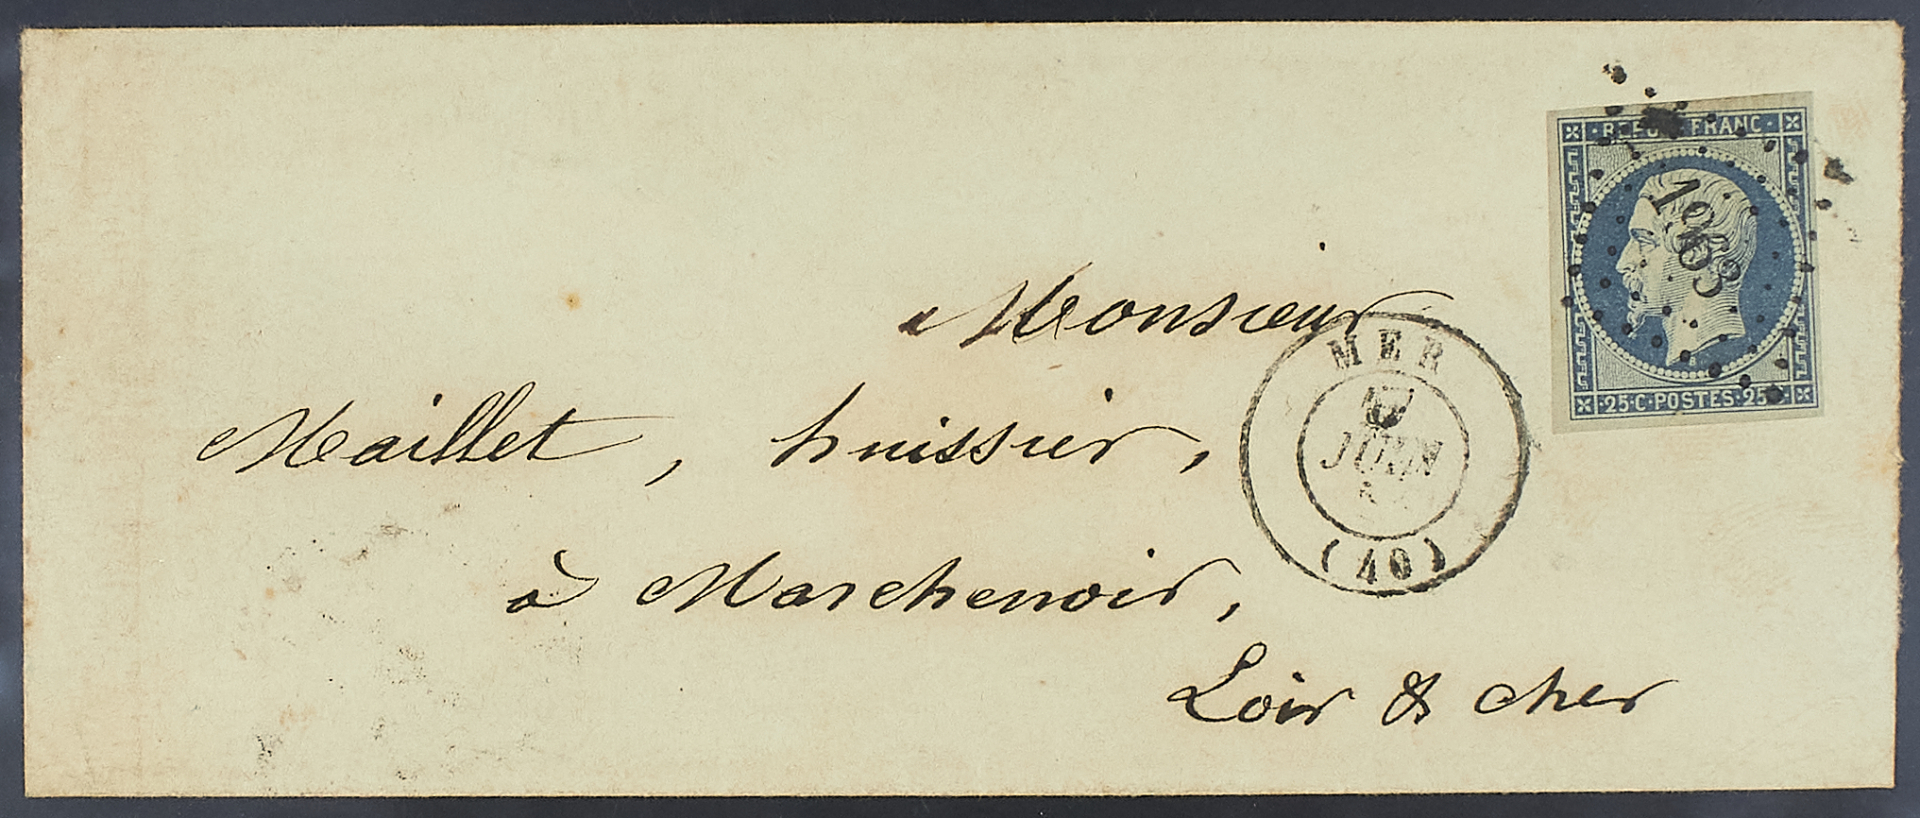 REPUB. FRANC.
1963
25·C·POSTES·25
Monsieur
MER
JUIN
(40)
Maillet, huissier,
à Marchenoir,
Loir & cher